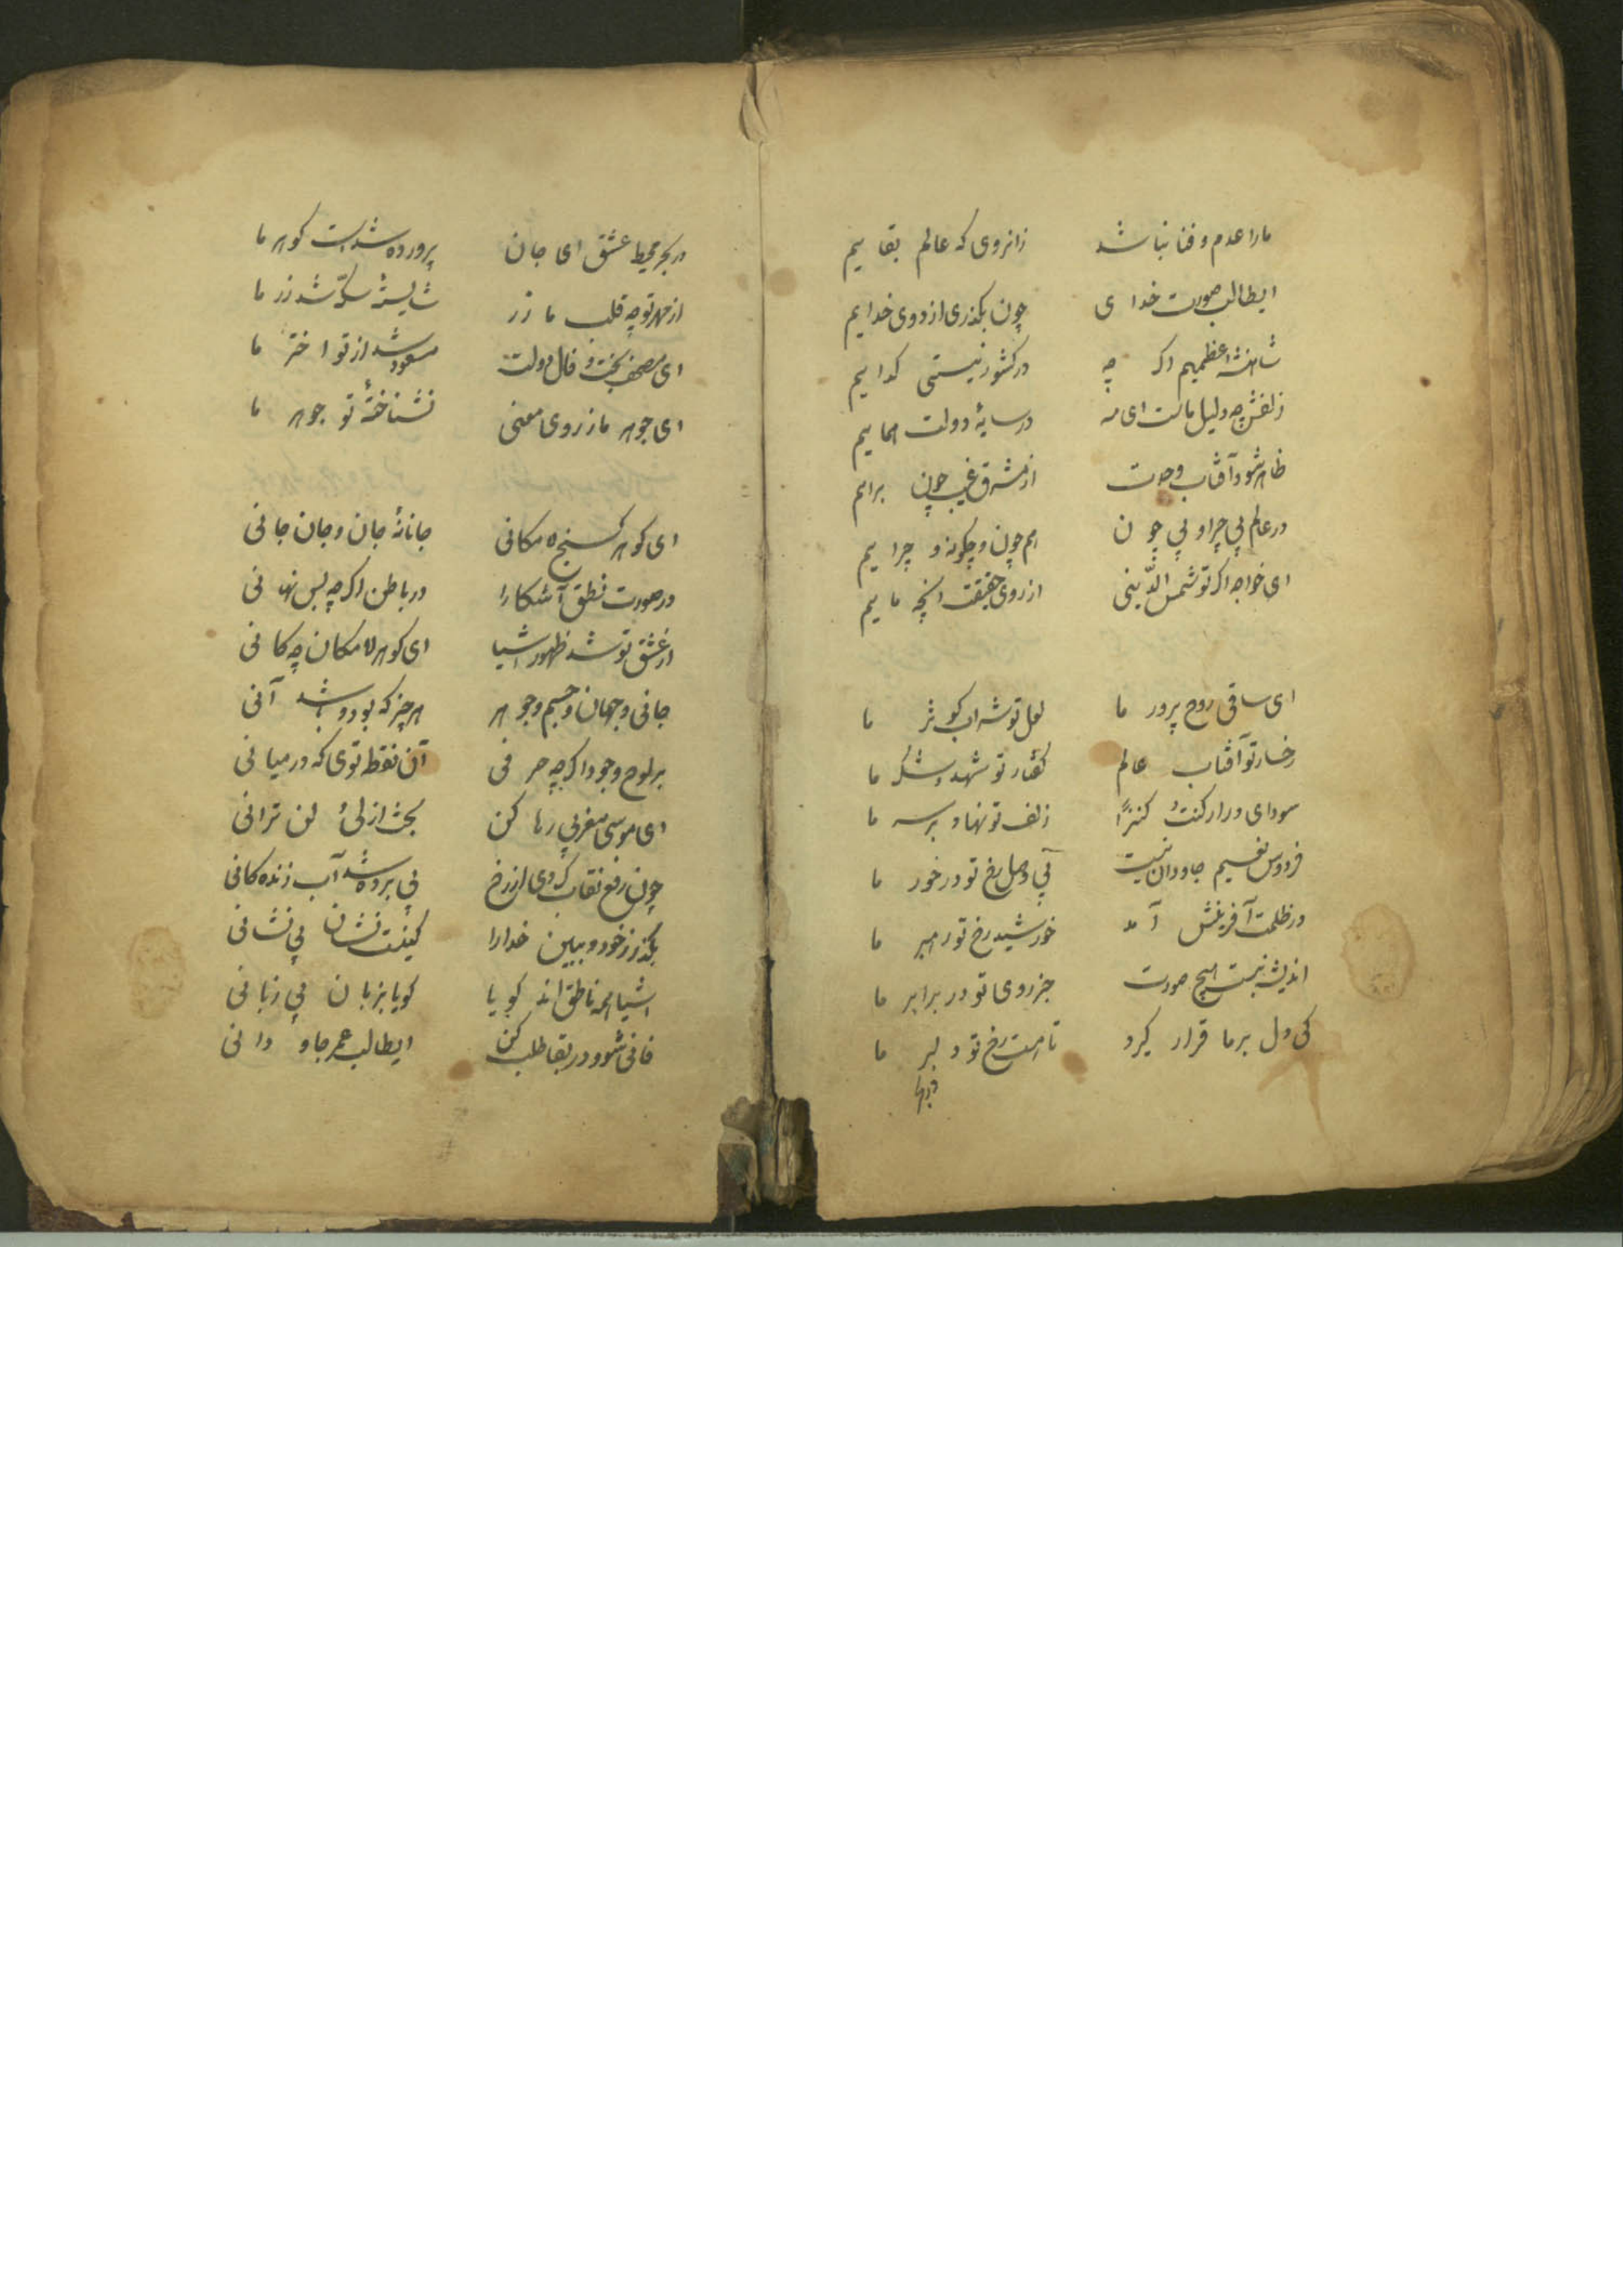 مارا عدم و فنا نباشد زانروی که عالم بقاییم
ایطالب صورت خدای چون بگذری از دوی خداییم
شاهنشه اعظمیم اگرچه در کشور نیستی گداییم
زلفش چو دلیل ماست ای مه در سایهٔ دولت هماییم
ظاهر شود آفتاب وحدت از مشرق غیب چون براییم
در عالم بی چرا و بی چون هم چون و چگونه و چراییم
ای خواجه اگر تو شمس الدّینی از روی حقیقت آنچه ماییم
ای ساقی روح پرور ما لعل تو شراب کوثر ما
رخسار تو آفتاب عالم گفتار تو شهد و شکر ما
سودای ورا کنتُ کنزًا زلف تو نهاد بر سر ما
فردوس نعیم جاودان نیست بی وصل رخ تو درخور ما
در ظلمت آفرینش آمد خورشید رخ تو رهبر ما
اندیشه نبست هیچ صورت جز روی تو در برابر ما
کی دل بر ما قرار گیرد تا هست رخ تو دلبر ما
در بحر محیط عشق ای جان پرورده شدست گوهر ما
از مهر تو چه قلب ما زر شایستهٔ سکّه شد زر ما
ای مصحف بخت و فال دولت مسعود شد از تو اختر ما
ای جوهر ما ز روی معنی نشناختهٔ تو جوهر ما
ای گوهر گنج لامکانی جانانهٔ جان و جان جانی
در صورت نطق آشکارا در باطن اگرچه بس نهانی
از عشق تو شد ظهور اشیا ای گوهر لامکان چه کانی
جانی و جهان و جسم و جوهر هر چیز که بود و باشد آنی
بر لوح وجود اگرچه حرفی آن نقطه توی که در میانی
ای موسی مغربی رها کن بحث ازلیٔ لن ترانی
چون رفع نقاب کردی از رخ پی برده شد آب زنده گانی
بگذر ز خود و ببین خدارا کینست نشان بی نشانی
اشیا همه ناطق اند گویا گویا بزبان بی زبانی
فانی شو و در بقا طلب کن ایطالب عمر جاودانی